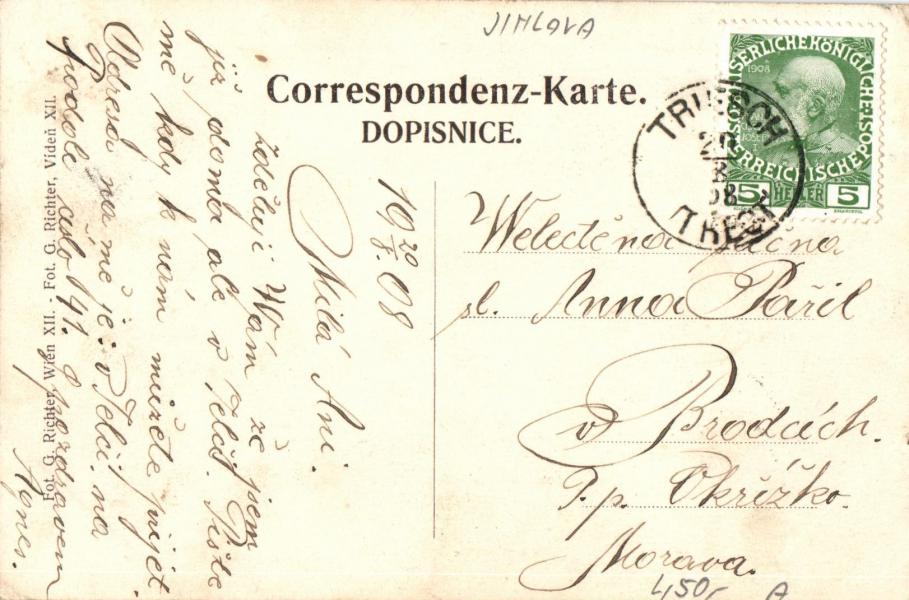 JIHLAVA
Correspondenz-Karte.
DOPISNICE.
KAISERLICHE KÖNIGLICHE
ÖSTERREICHISCHE POST
1908
5 HELLER 5
TRIESCH
08
TŘEŠŤ
Fot. G. Richter, Wien XII. - Fot. G. Richter, Videň XII.
10 20/V. 08
Milá Ani.
Zdeluji Wám že jsem
již doma ale v Telči. Pište
mě kdy k nám mužete přijet.
Adresa na mě je: v Telči. na
Podolí čislo 141. S pozdravem
Agnes.
Welectěná slečna
sl. Anna Pařil
v Brodcích.
P.p. Okřížko.
Morava.
4,50,- A